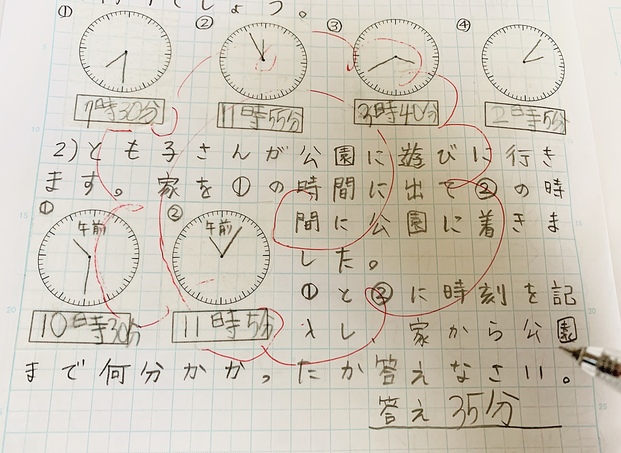 でしょう。
① ② ③ ④
7時30分 11時55分 3時40分 2時5分
2)とも子さんが公園に遊びに行き
ます。家を①の時間に出て②の時
① ② 間に公園に着きま
午前 午前
した。
①と②に時刻を記
10時30分 11時5分 入し、家から公園
まで何分かかったか答えなさい。
答え 35分